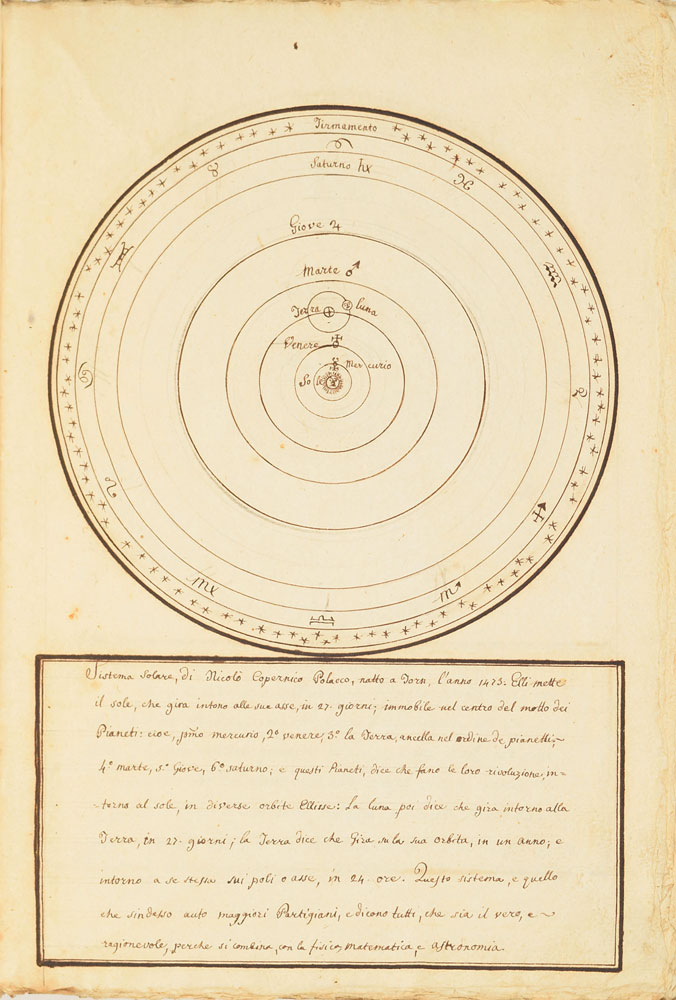 Firmamento
Saturno ♄
Giove ♃
Marte ♂
Terra luna
Venere ♀
Mercurio ☿
Sole
Sistema Solare, di Nicolò Copernico Polacco, natto a Torn, l'anno 1473: Elli mette
il sole, che gira intono alla sua asse, in 27. giorni; immobile nel centro del motto dei
Pianeti: cioe, pṝmo mercurio, 2º venere, 3º la Terra, ancella nel ordine de pianetti,~
4º marte, 5º Giove, 6º saturno; e questi Pianeti, dice che fano le loro rivoluzione, in=
torno al sole, in diverse orbite Ellisse: La luna poi dice che gira intorno alla
Terra, in 27. giorni; la Terra dice che Gira su la sua orbita, in un anno; e
intorno a se stessa sui poli o asse, in 24. ore. Questo sistema, e quello
che sindesso auto maggiori Partigiani, e dicono tutti, che sia il vero, e~
ragionevole, perche si combina, con la fisica, matematica, e astronomia.